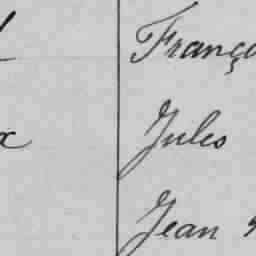 Franço
Jules
Jean